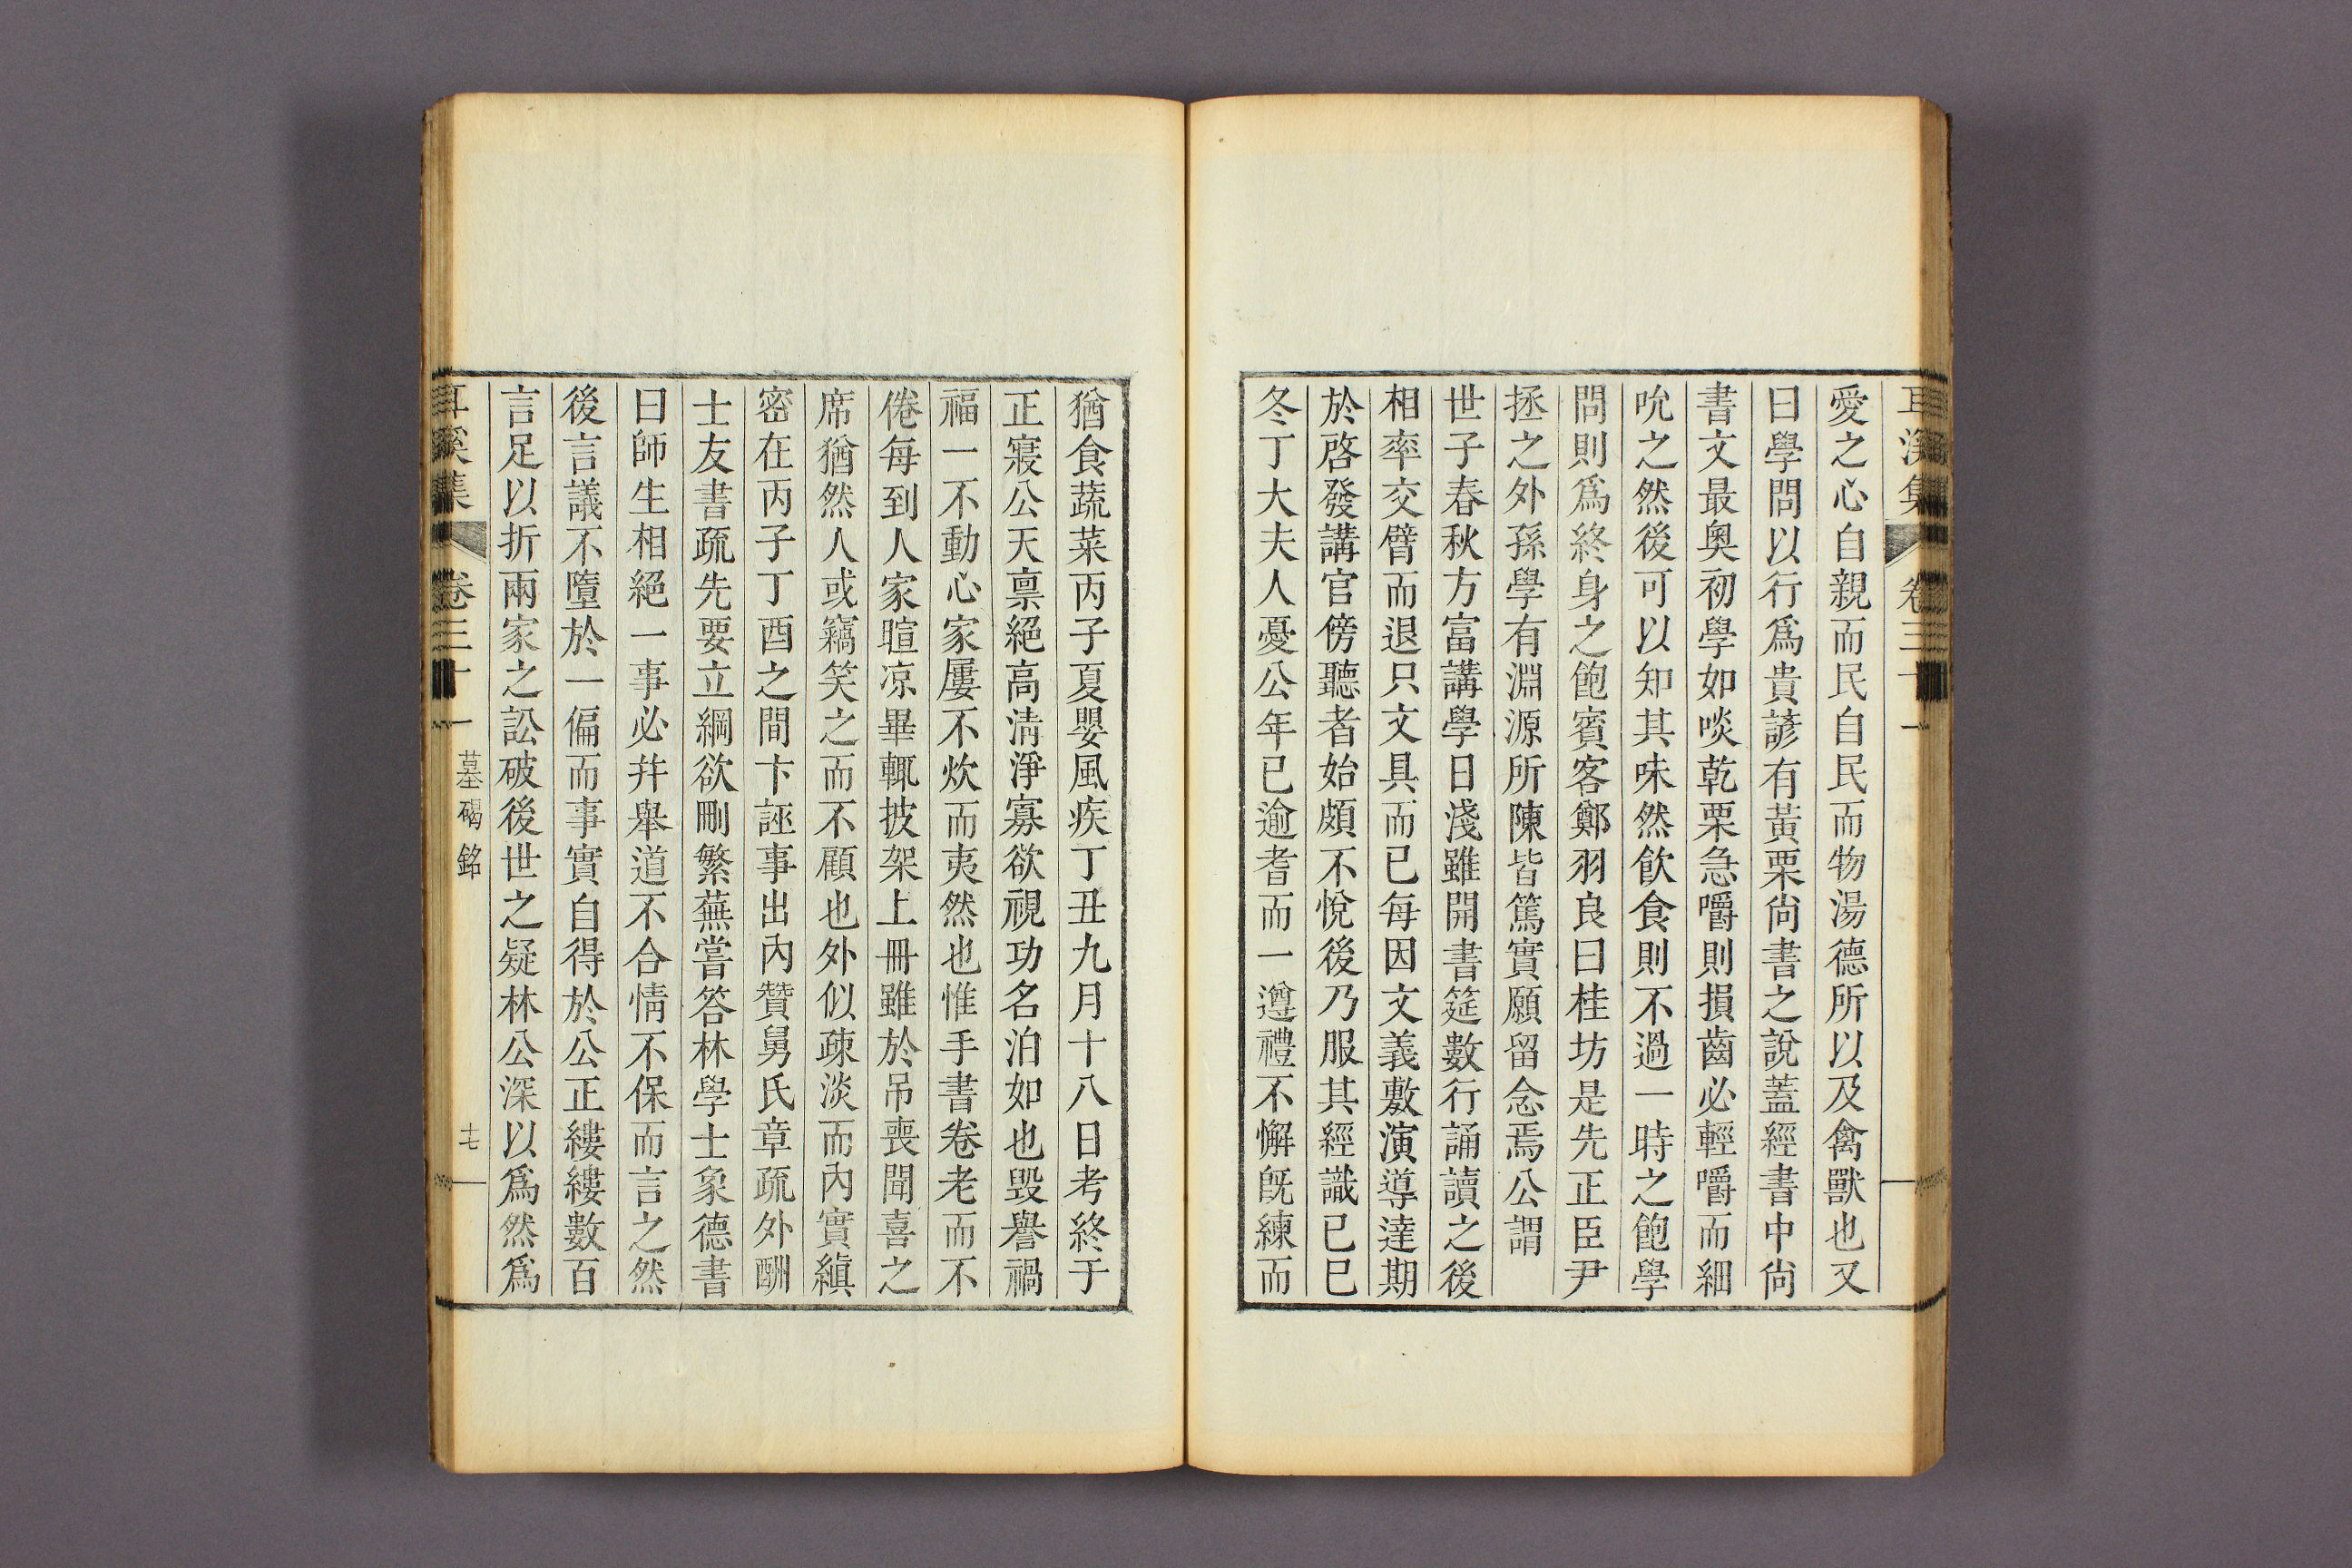 愛之心自親而民自民而物湯德所以及禽獸也又
曰學問以行爲貴諺有黃栗尙書之說蓋經書中尙
書文最奧初學如啖乾栗急嚼則損齒必輕嚼而細
吮之然後可以知其味然飮食則不過一時之飽學
問則爲終身之飽賓客鄭羽良曰桂坊是先正臣尹
拯之外孫學有淵源所陳皆篤實願留念焉公謂
世子春秋方富講學日淺雖開書筵數行誦讀之後
相率交臂而退只文具而已每因文義敷演導達期
於啓發講官傍聽者始頗不悅後乃服其經識已巳
冬丁大夫人憂公年已逾耆而一遵禮不懈旣練而
猶食蔬菜丙子夏嬰風疾丁丑九月十八日考終于
正寢公天禀絕高淸淨寡欲視功名泊如也毁譽禍
福一不動心家屢不炊而夷然也惟手書卷老而不
倦每到人家暄凉畢輒披架上冊雖於吊喪聞喜之
席猶然人或竊笑之而不顧也外似疎淡而內實縝
密在丙子丁酉之間卞誣事出內贊舅氏章疏外酬
士友書疏先要立綱欲刪繁蕪嘗答林學士象德書
曰師生相絕一事必幷舉道不合情不保而言之然
後言議不墮於一偏而事實自得於公正縷縷數百
言足以折兩家之訟破後世之疑林公深以爲然爲
耳溪集 卷三十一 墓碣銘 十七